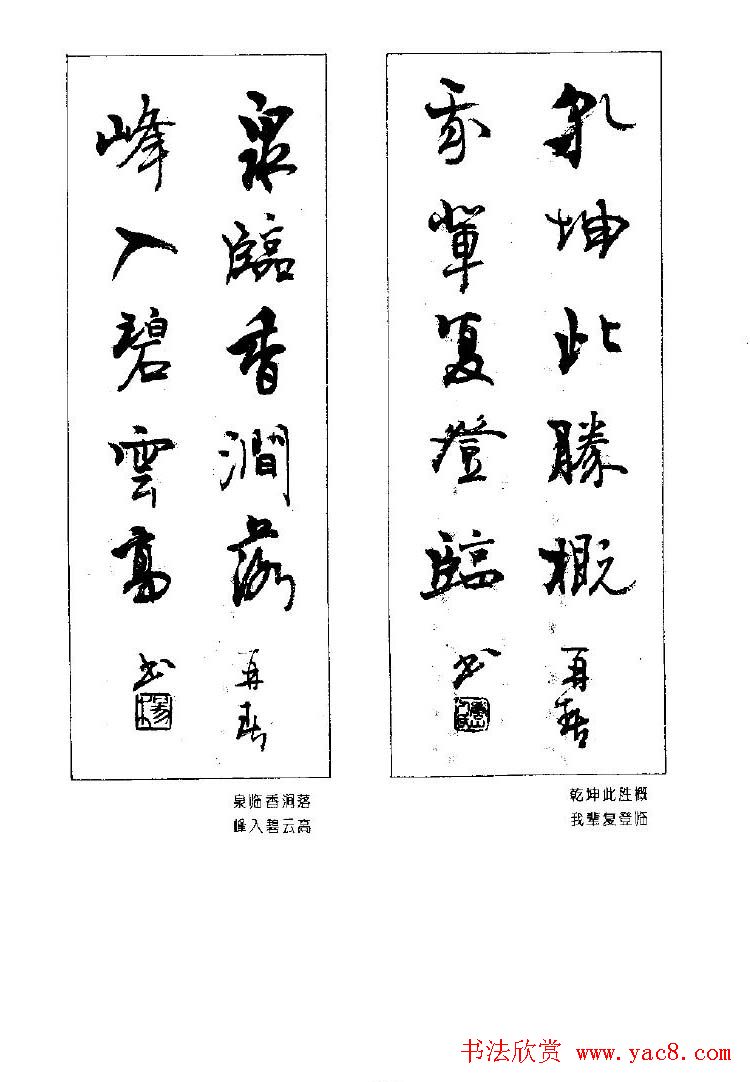 乾坤此勝概
我輩复登臨 书
泉臨香澗落
峰入碧雲高 书
乾坤此胜概
我辈复登临
泉临香涧落
峰入碧云高
书法欣赏 www.yac8.com